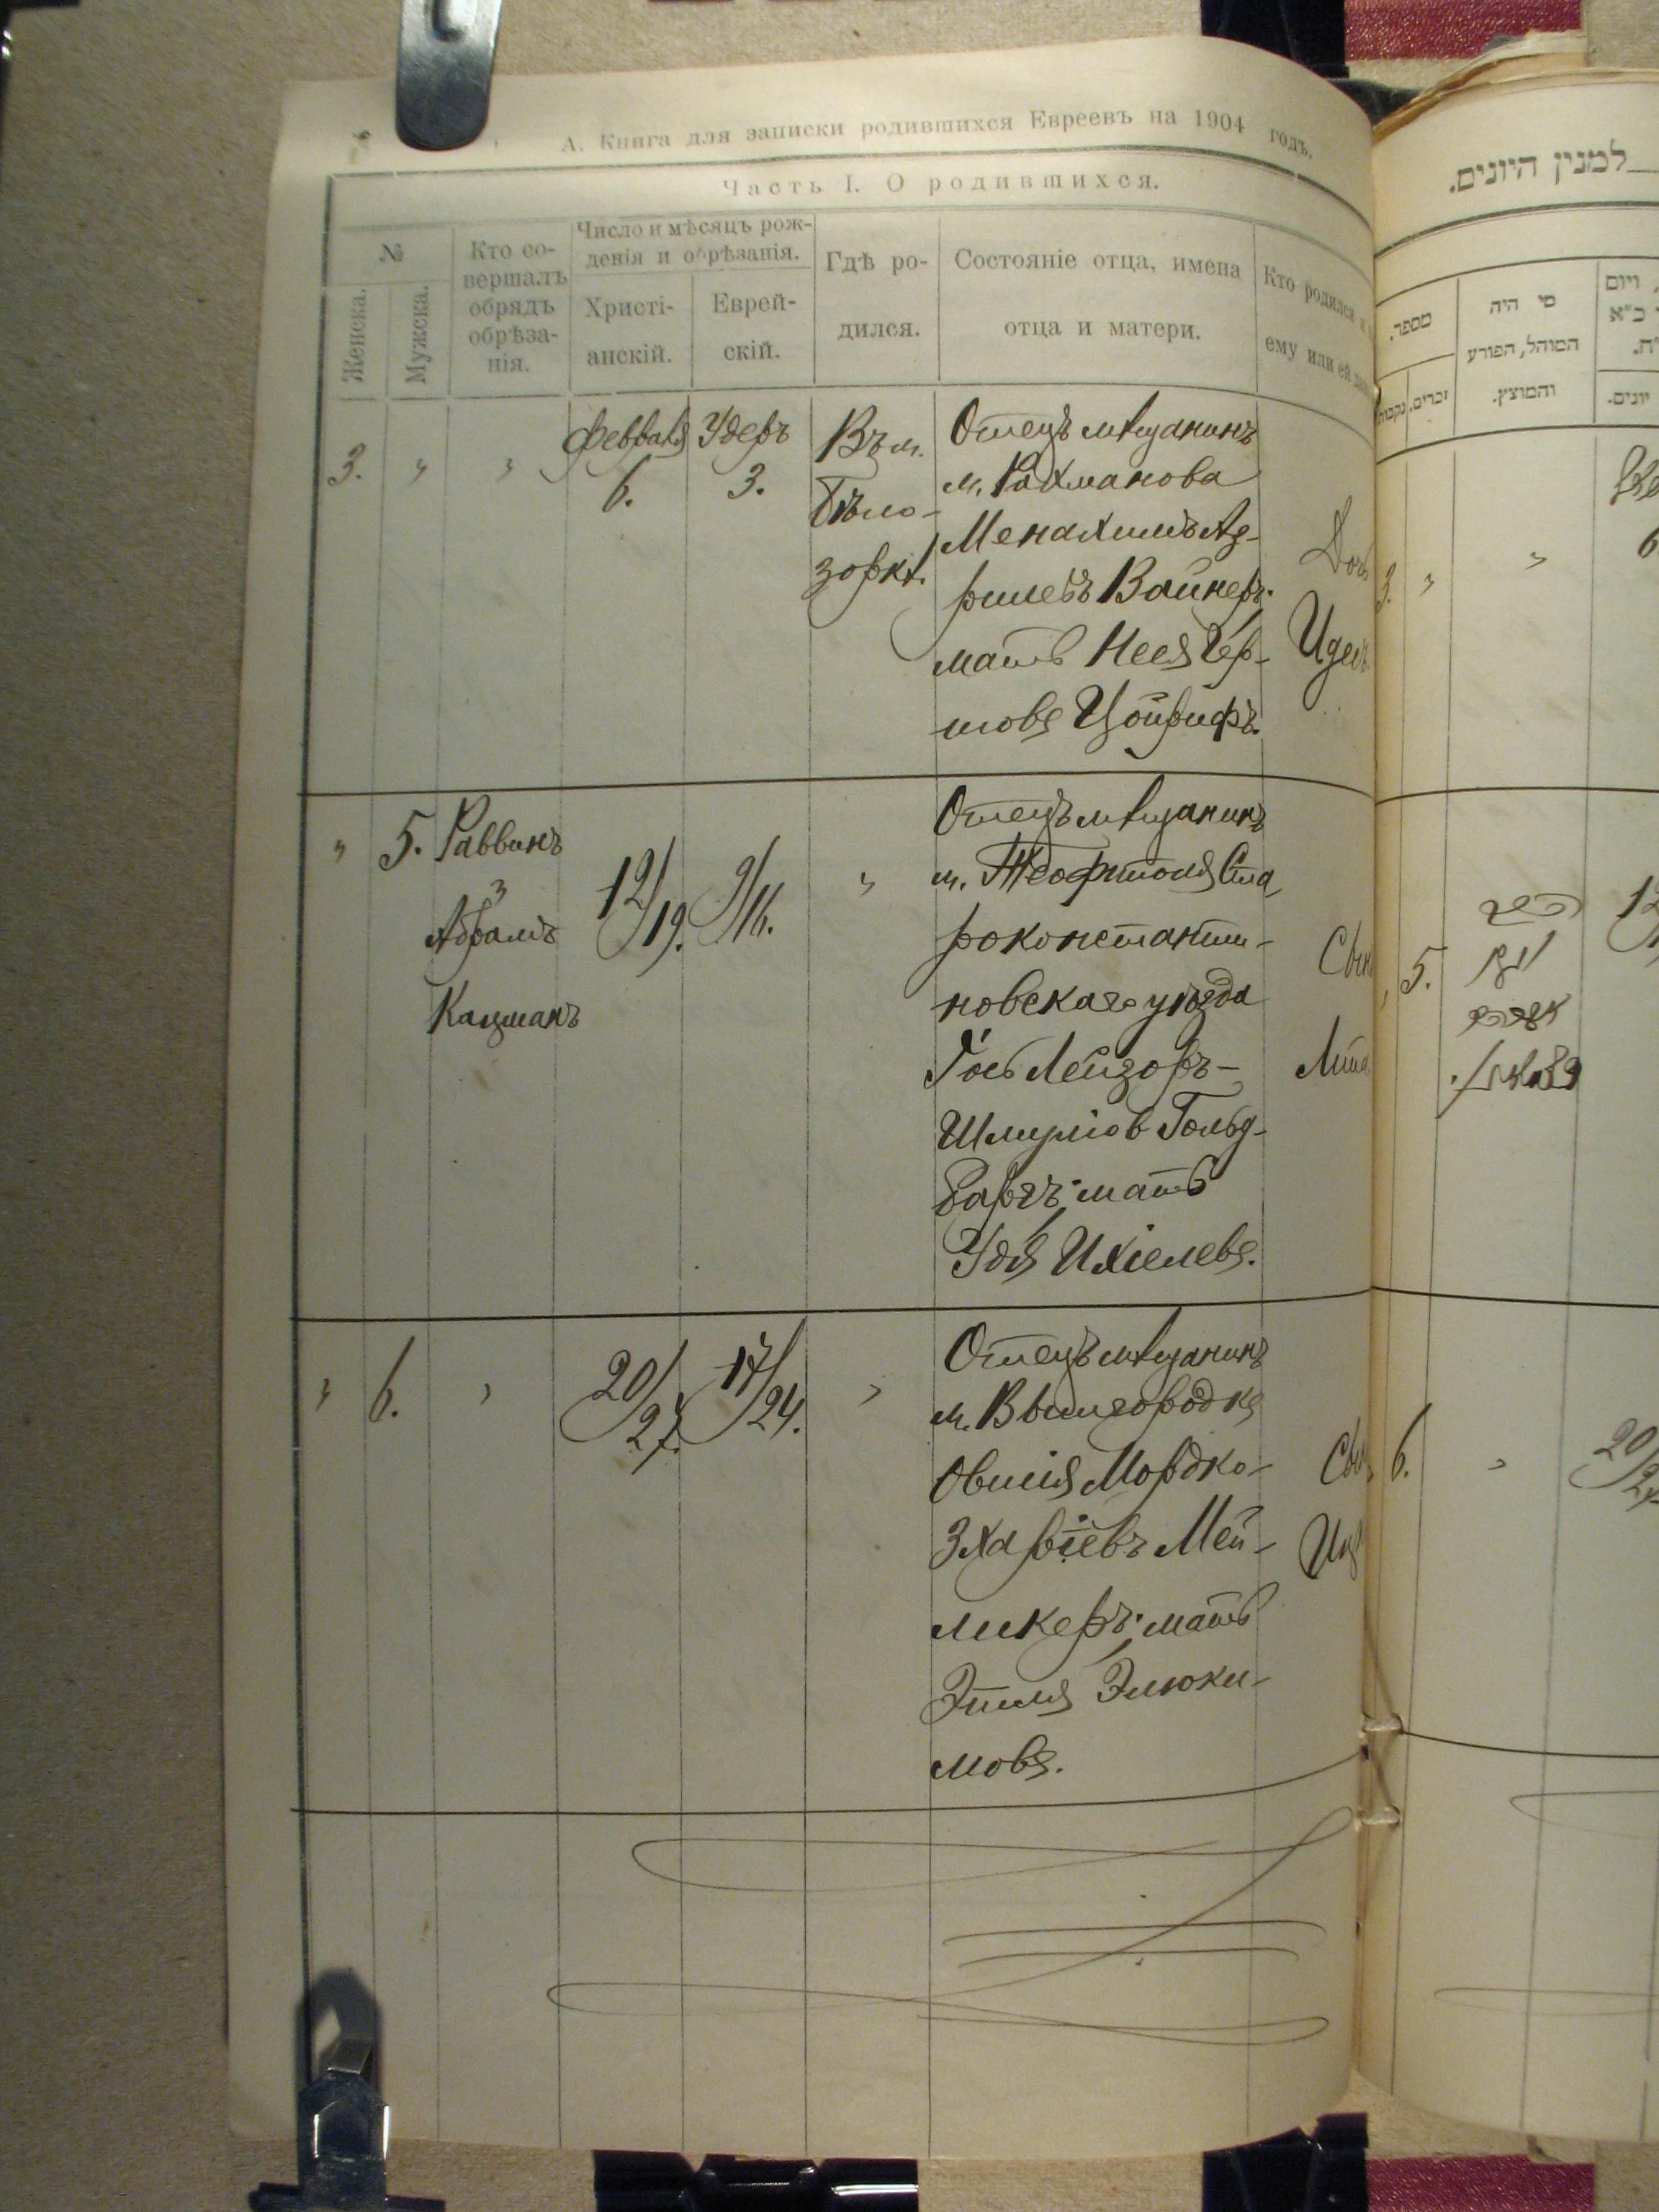 А. Книга для записки родившихся Евреевъ на 1904 годъ.
Часть I. О родившихся.
№
Женска.
Мужска.
Кто со-
вершалъ
обрядъ
обрѣза-
нія.
Число и мѣсяцъ рож-
денія и обрѣзанія.
Христі-
анскій.
Еврей-
скій.
Гдѣ ро-
дился.
Состояніе отца, имена
отца и матери.
Кто родился и
ему или ей
3. " "
Февраля
6.
Удеръ
3.
Въ м.
Бѣло-
зоркѣ.
Отецъ мѣщанинъ
м. Рахманова
Менахимъ Ад-
Вайнеръ.
мать Неся Гер-
шова Цойрифъ.
Дочь
" 5. Раввинъ
Абрамъ
Кацманъ
12/19. 9/16. "
Отецъ мѣщанинъ
м. Теофиполя Ста
роконстанти-
новскаго уѣзда
Лейзоръ-
Шмулiов Гольд-
баргъ; мать
Удя Ихіелева.
Сын
" 6. " 20/27. 17/24. "
Отецъ мѣщанинъ
м. Вышгородка
Овшія Мордко-
Зхаріевъ Мей-
ликеръ; мать
Этля Элюки-
мова.
Сын
למנין היונים.
מספר.
זכרים.
נקבות
מי היה
המוהל, הפורע
והמוצץ.
ויום
יונים.
3. " "
6
5.
12
6. "
20/27